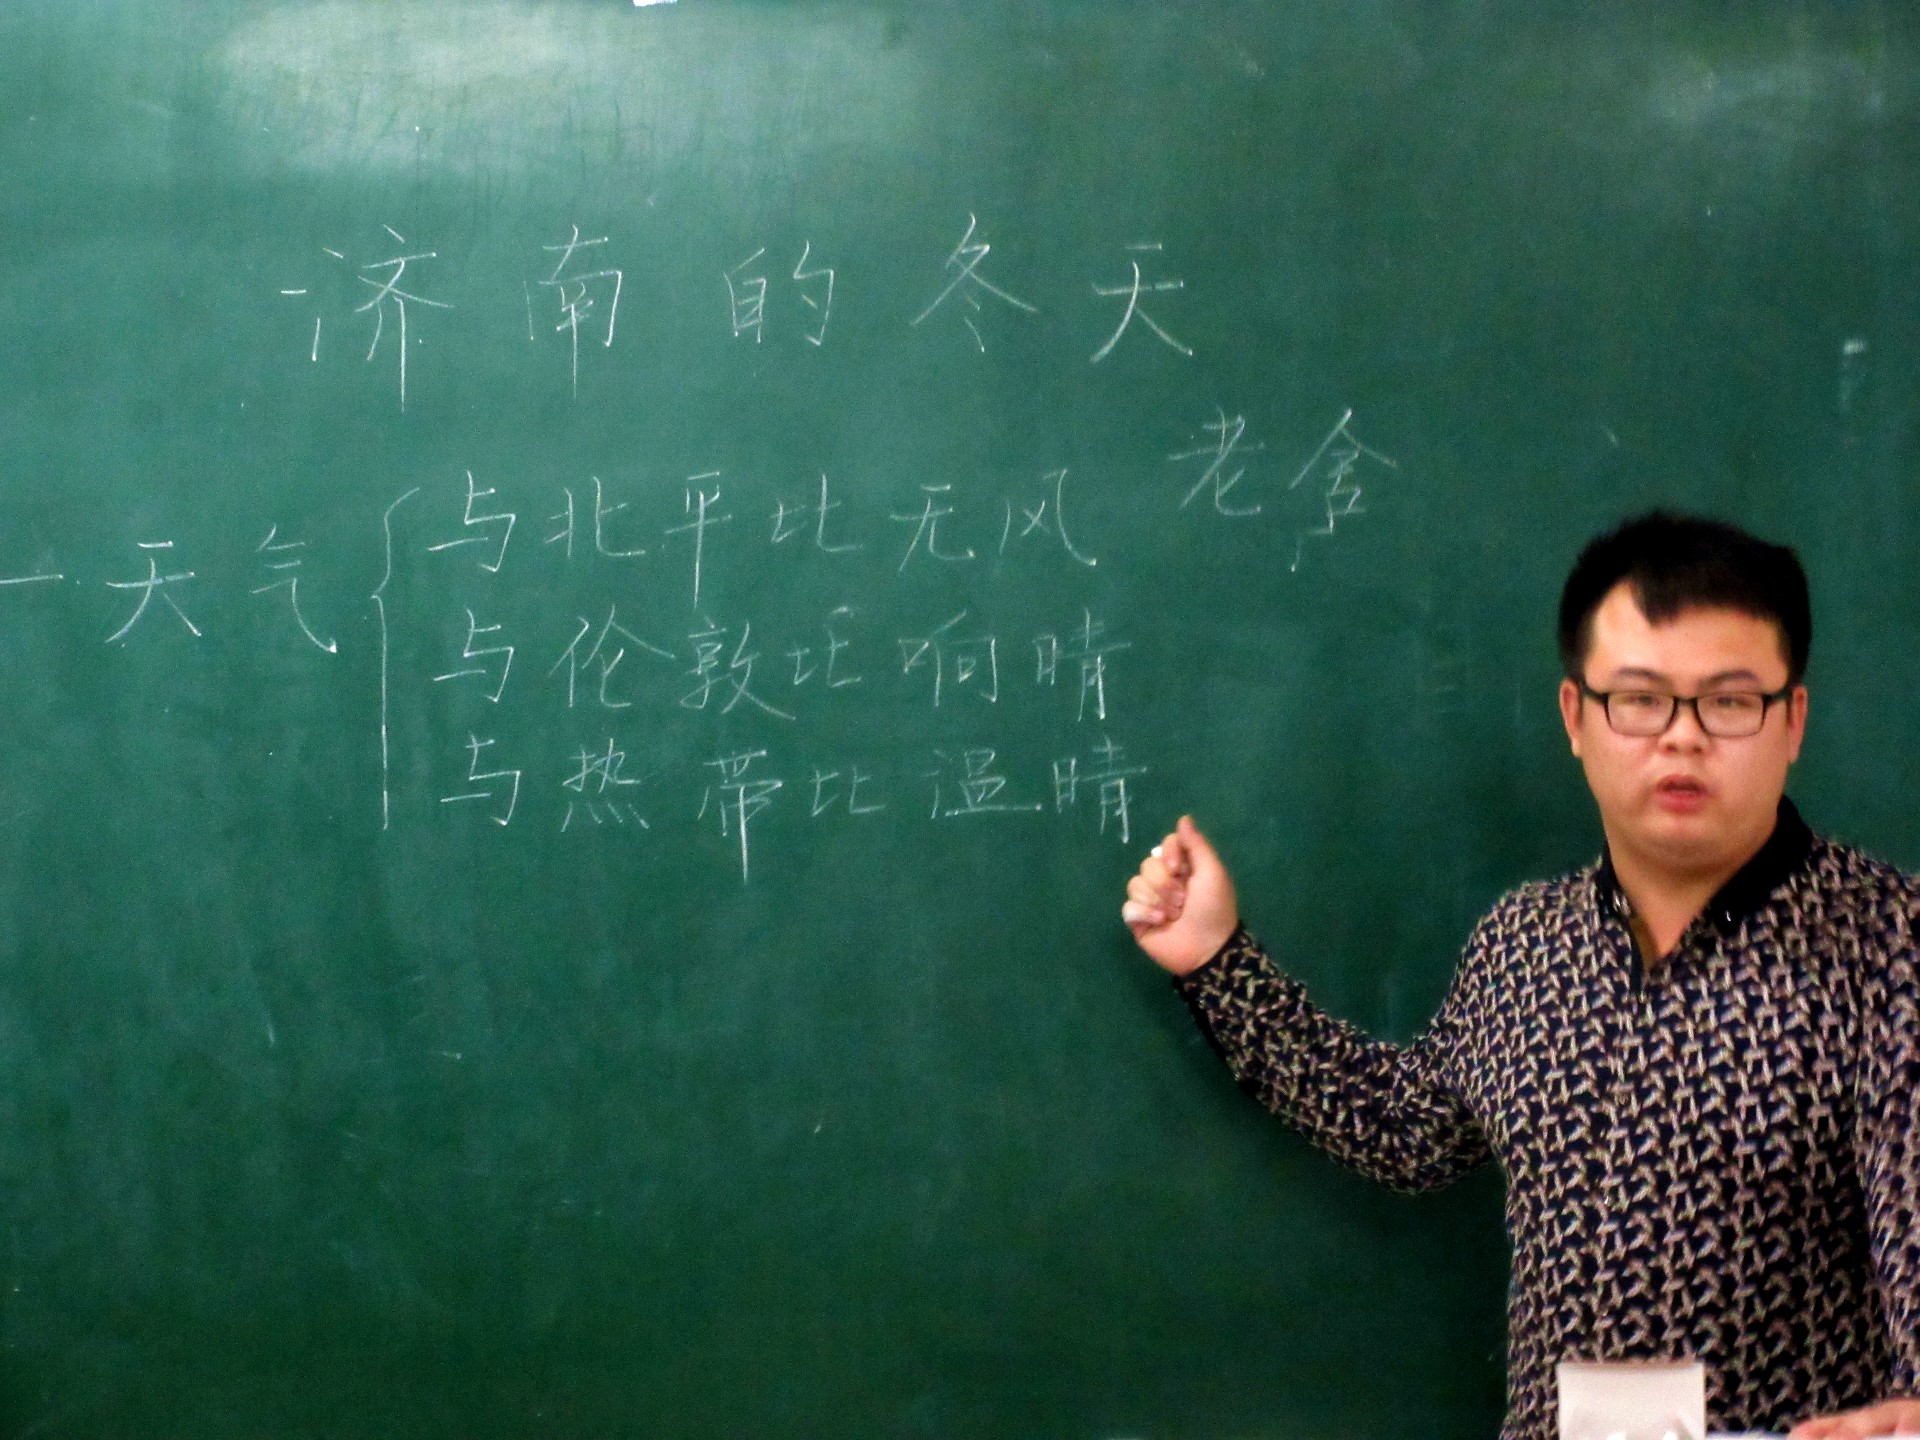 济南的冬天
老舍
一.天气
与北平比无风
与伦敦比响晴
与热带比温晴